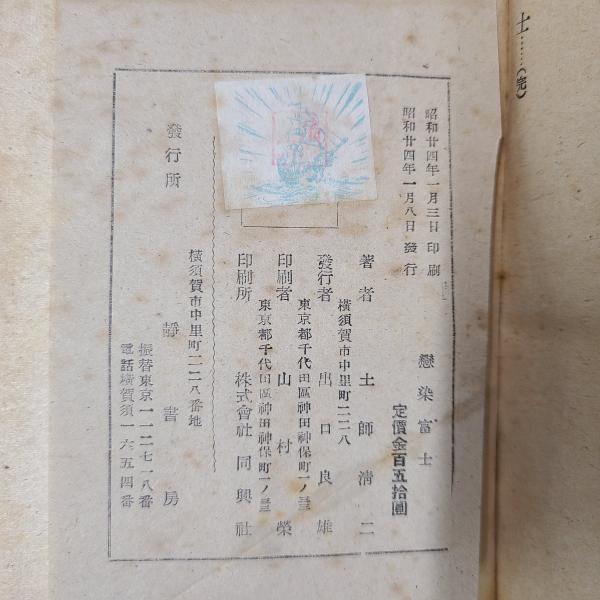 士……(完)
昭和廿四年一月三日印刷
昭和廿四年一月八日發行
戀染富士
定價金百五拾圓
著者 土師淸二
橫須賀市中里町二二八
發行者 出口良雄
東京都千代田區神田神保町一ノ
印刷者 山村榮
東京都千代田區神田神保町一ノ
印刷所 株式會社同興社
橫須賀市中里町二二八番地
發行所 靜書房
振替東京一一二七一八番
電話橫賀須一六五四番